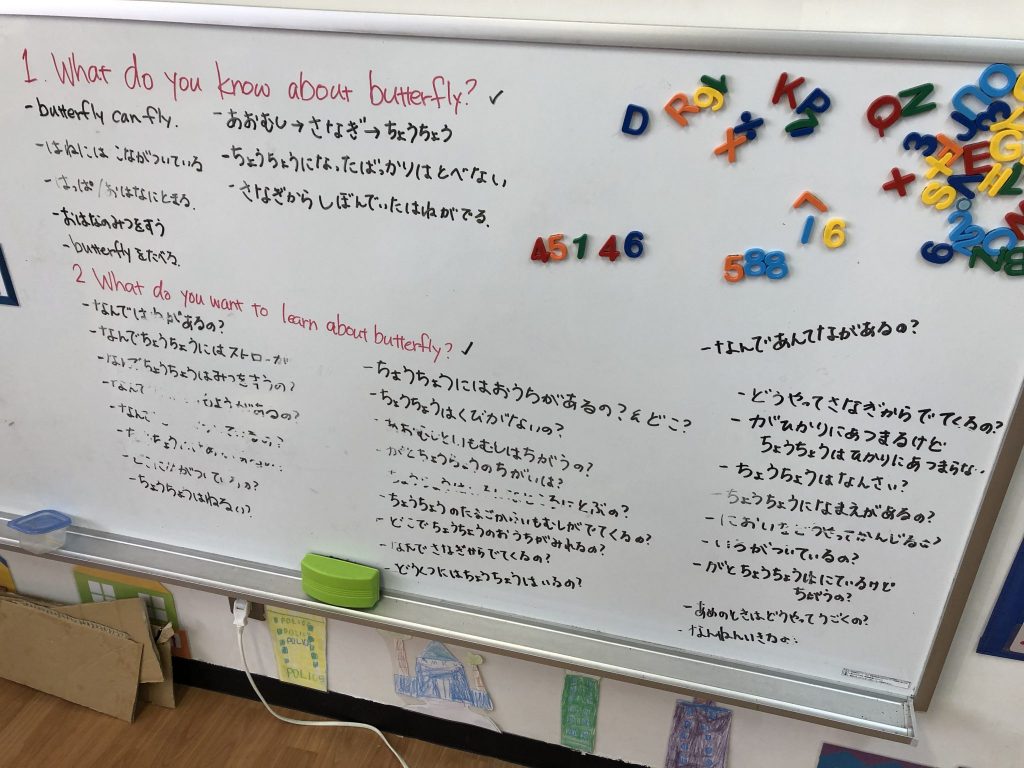 1. What do you know about butterfly? ✓
- butterfly can fly.
- はねには こながついている
- はっぱ/おはなにとまる.
- おはなのみつをすう
- butterfly をたべる.
- あおむし→さなぎ→ちょうちょう
- ちょうちょうになったばっかりはとべない
- さなぎからしぼんでいたはねがでる.
2 What do you want to learn about butterfly? ✓
- なんではねがあるの?
- なんでちょうちょうにはストローが
- なんでちょうちょうはみつをすうの?
- なんで もようがあるの?
- なんで
- どこに がついているの?
- ちょうちょうはねるい?
- ちょうちょうにはおうちがあるの? & どこ?
- ちょうちょうはくびがないの?
- あおむしといもむしはちがうの?
- がとちょうちょうのちがいは?
ところにとぶの?
- ちょうちょうのたまごからいもむしがでてくるの?
- どこでちょうちょうのおうちがみれるの?
- なんでさなぎからでてくるの?
- どうくつにはちょうちょうはいるの?
- なんであんてながあるの?
- どうやってさなぎからでてくるの?
- がひかりにあつまるけど
ちょうちょうはひかりにあつまらな
- ちょうちょうはなんさい?
- ちょうちょうになまえがあるの?
- においをどうやってかんじるの?
- いろがついているの?
- がとちょうちょうはにているけど
ちがうの?
- あめのときはどうやってうごくの?
- なんねんいきる
D R 9 K P
X
Q N
45146
588
16
POLICE
POLICE
POLICE
POLICE